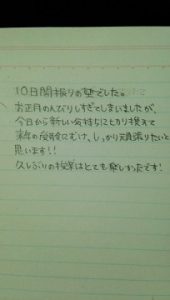 10日間振りの塾でした。
お正月のんびりしすぎてしまいましたが、
今日から新しい気持ちに切り換えて
来年の受験にむけ、しっかり頑張りたいと
思います!!
久しぶりの授業はとても楽しかったです!